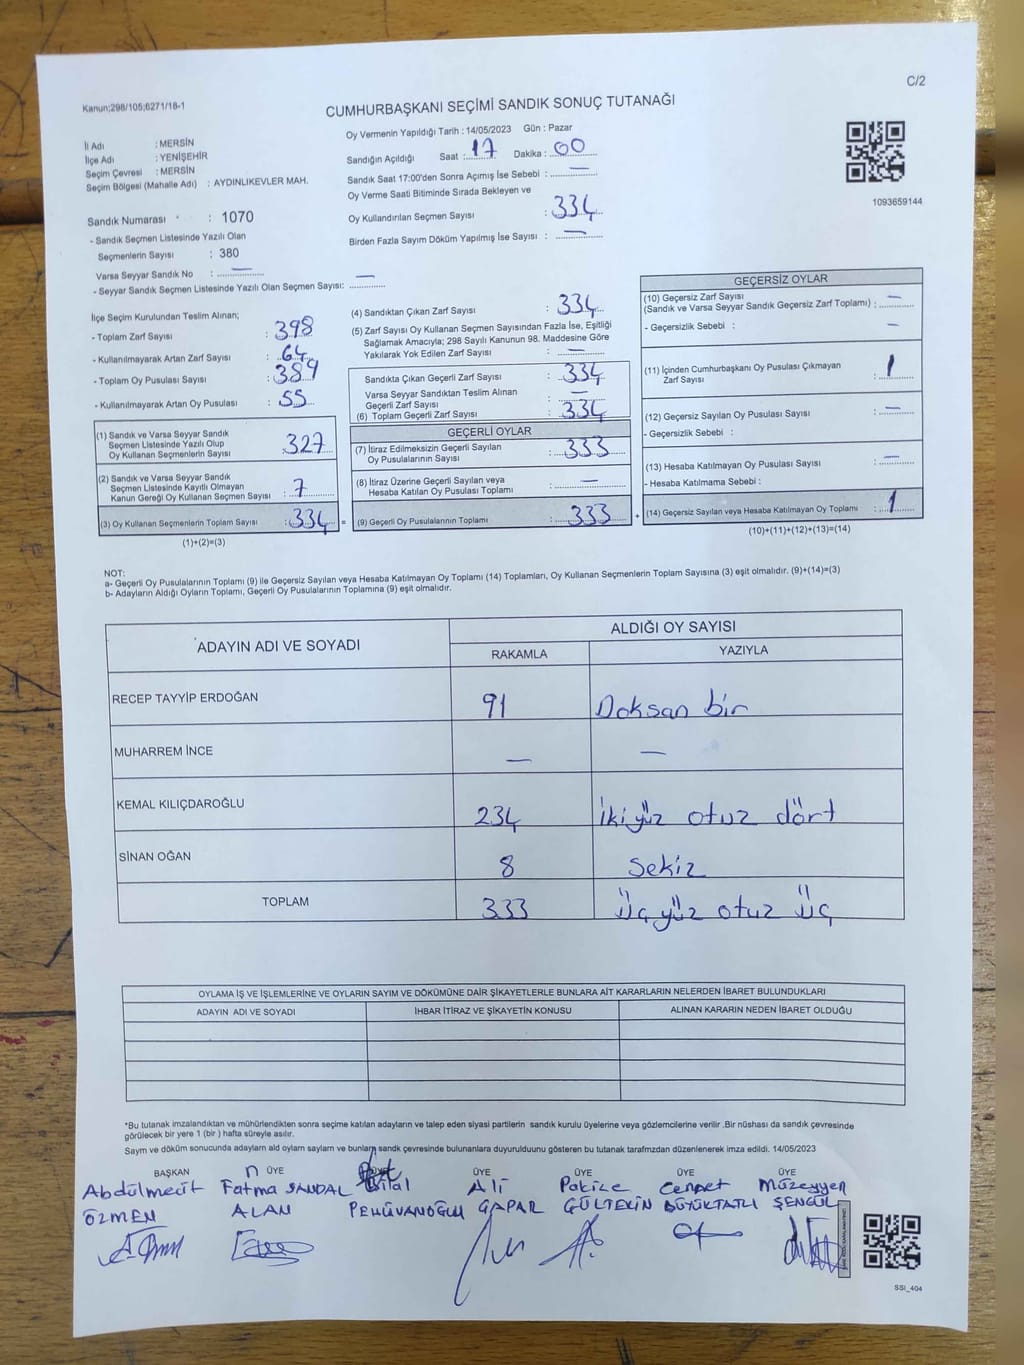 C/2
Kanun;298/105;6271/18-1
CUMHURBAŞKANI SEÇİMİ SANDIK SONUÇ TUTANAĞI
İl Adı : MERSİN
İlçe Adı : YENİŞEHİR
Seçim Çevresi : MERSİN
Seçim Bölgesi (Mahalle Adı) : AYDINLIKEVLER MAH.
Sandık Numarası : 1070
- Sandık Seçmen Listesinde Yazılı Olan
Seçmenlerin Sayısı : 380
Varsa Seyyar Sandık No : —
- Seyyar Sandık Seçmen Listesinde Yazılı Olan Seçmen Sayısı: —
Oy Vermenin Yapıldığı Tarih : 14/05/2023 Gün : Pazar
Sandığın Açıldığı Saat : 17 Dakika : 00
Sandık Saat 17:00'den Sonra Açımış İse Sebebi : —
Oy Verme Saati Bitiminde Sırada Bekleyen ve
Oy Kullandırılan Seçmen Sayısı : 334
Birden Fazla Sayım Döküm Yapılmış İse Sayısı : —
1093659144
İlçe Seçim Kurulundan Teslim Alınan;
- Toplam Zarf Sayısı : 398
- Kullanılmayarak Artan Zarf Sayısı : 64
- Toplam Oy Pusulası Sayısı : 389
- Kullanılmayarak Artan Oy Pusulası : 55
(1) Sandık ve Varsa Seyyar Sandık
Seçmen Listesinde Yazılı Olup
Oy Kullanan Seçmenlerin Sayısı : 327
(2) Sandık ve Varsa Seyyar Sandık
Seçmen Listesinde Kayıtlı Olmayan
Kanun Gereği Oy Kullanan Seçmen Sayısı : 7
(3) Oy Kullanan Seçmenlerin Toplam Sayısı : 334 =
(1)+(2)=(3)
(4) Sandıktan Çıkan Zarf Sayısı : 334
(5) Zarf Sayısı Oy Kullanan Seçmen Sayısından Fazla İse, Eşitliği
Sağlamak Amacıyla; 298 Sayılı Kanunun 98. Maddesine Göre
Yakılarak Yok Edilen Zarf Sayısı : —
Sandıkta Çıkan Geçerli Zarf Sayısı : 334
Varsa Seyyar Sandıktan Teslim Alınan
Geçerli Zarf Sayısı : —
(6) Toplam Geçerli Zarf Sayısı : 334
GEÇERLİ OYLAR
(7) İtiraz Edilmeksizin Geçerli Sayılan
Oy Pusulalarının Sayısı : 333
(8) İtiraz Üzerine Geçerli Sayılan veya
Hesaba Katılan Oy Pusulası Toplamı : —
(9) Geçerli Oy Pusulalarının Toplamı : 333 +
GEÇERSİZ OYLAR
(10) Geçersiz Zarf Sayısı
(Sandık ve Varsa Seyyar Sandık Geçersiz Zarf Toplamı) : —
- Geçersizlik Sebebi : —
(11) İçinden Cumhurbaşkanı Oy Pusulası Çıkmayan
Zarf Sayısı : 1
(12) Geçersiz Sayılan Oy Pusulası Sayısı : —
- Geçersizlik Sebebi :
(13) Hesaba Katılmayan Oy Pusulası Sayısı : —
- Hesaba Katılmama Sebebi :
(14) Geçersiz Sayılan veya Hesaba Katılmayan Oy Toplamı : 1
(10)+(11)+(12)+(13)=(14)
NOT:
a- Geçerli Oy Pusulalarının Toplamı (9) ile Geçersiz Sayılan veya Hesaba Katılmayan Oy Toplamı (14) Toplamları, Oy Kullanan Seçmenlerin Toplam Sayısına (3) eşit olmalıdır. (9)+(14)=(3)
b- Adayların Aldığı Oyların Toplamı, Geçerli Oy Pusulalarının Toplamına (9) eşit olmalıdır.
ADAYIN ADI VE SOYADI ALDIĞI OY SAYISI
RAKAMLA YAZIYLA
RECEP TAYYİP ERDOĞAN 91 Doksan bir
MUHARREM İNCE — —
KEMAL KILIÇDAROĞLU 234 İkiyüz otuz dört
SİNAN OĞAN 8 Sekiz
TOPLAM 333 Üçyüz otuz üç
OYLAMA İŞ VE İŞLEMLERİNE VE OYLARIN SAYIM VE DÖKÜMÜNE DAİR ŞİKAYETLERLE BUNLARA AİT KARARLARIN NELERDEN İBARET BULUNDUKLARI
ADAYIN ADI VE SOYADI İHBAR İTİRAZ VE ŞİKAYETİN KONUSU ALINAN KARARIN NEDEN İBARET OLDUĞU
*Bu tutanak imzalandıktan ve mühürlendikten sonra seçime katılan adayların ve talep eden siyasi partilerin sandık kurulu üyelerine veya gözlemcilerine verilir .Bir nüshası da sandık çevresinde
görülecek bir yere 1 (bir ) hafta süreyle asılır.
Sayım ve döküm sonucunda adayların ald oyların sayların ve bunların sandk çevresinde bulunanlara duyurulduunu gösteren bu tutanak tarafmzdan düzenlenerek imza edildi. 14/05/2023
BAŞKAN ÜYE ÜYE ÜYE ÜYE ÜYE
Abdülmecit Fatma SANDAL Bilal Ali Pakize Cennet Müzeyyen
ÖZMEN ALAN PEHLİVANOĞLU GAPAR GÜLTEKİN BÜYÜKTATLI ŞENGÜL
SSI_404